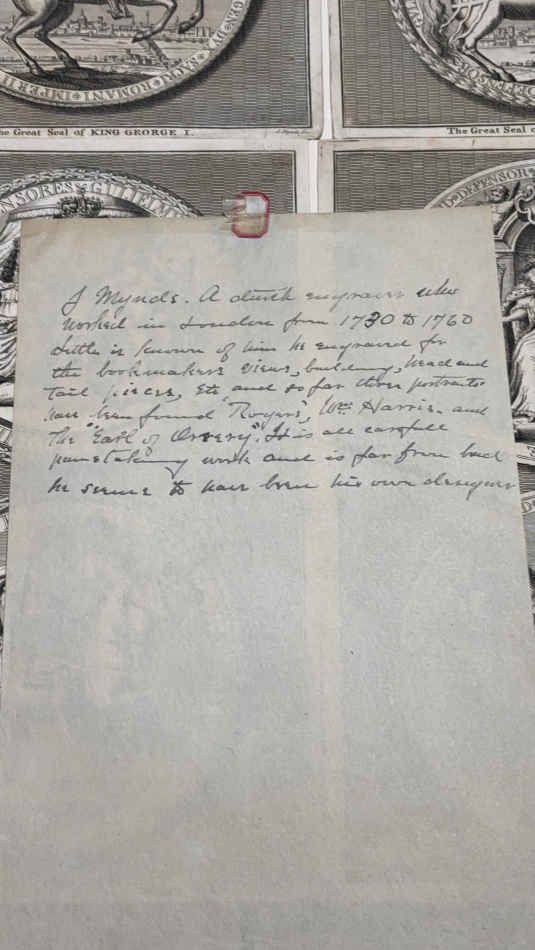 GN·DVX
SACRI·ROMANI·IMPERII
The Great Seal of KING GEORGE I.
The Great Seal
DEFENSOR
ENSORES
D·DEFENSOR
J Mynde. A dutch engraver who
worked in London from 1730 to 1760
Little is known of him he engraved for
the bookmakers views, building, head and
tail pieces, etc and so far three portraits
have been found "Rogers", Wm Harris. and
The "Earl of Orrery". It is all carefull
painstaking work and is far from bad
he seems to have been his own designer